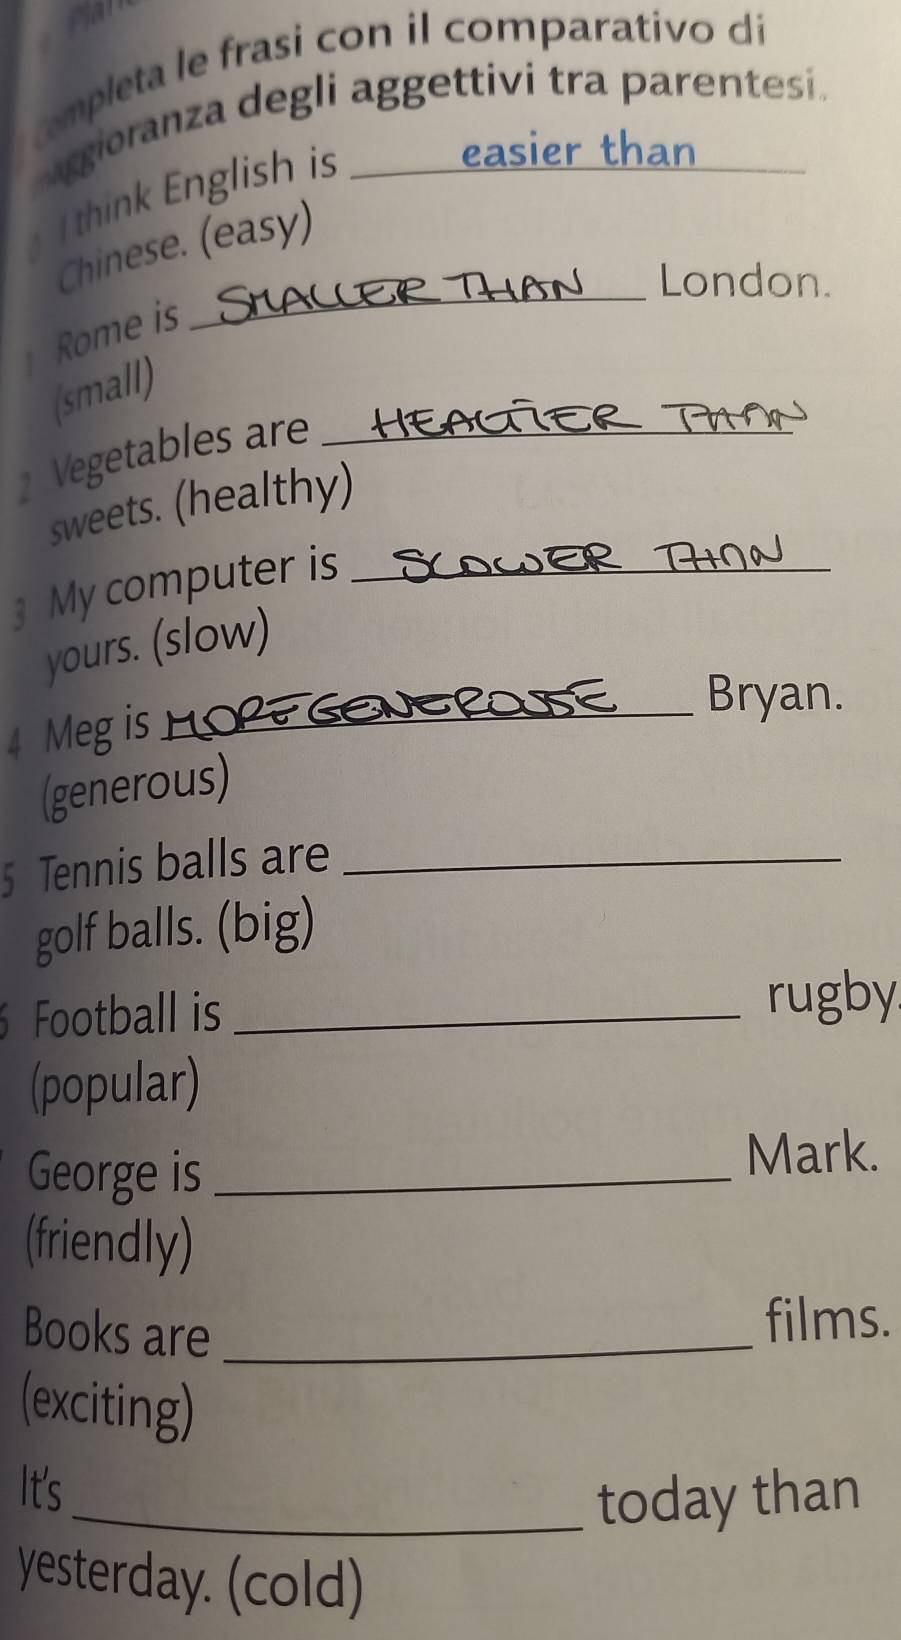 completa le frasi con il comparativo di
maggioranza degli aggettivi tra parentesi.
0 I think English is easier than
Chinese. (easy)
1 Rome is SMALLER THAN London.
(small)
2 Vegetables are HEALTIER THAN
sweets. (healthy)
3 My computer is SLOWER THAN
yours. (slow)
4 Meg is MORE GENEROUSE Bryan.
(generous)
5 Tennis balls are
golf balls. (big)
6 Football is rugby.
(popular)
George is Mark.
(friendly)
Books are films.
(exciting)
It's today than
yesterday. (cold)